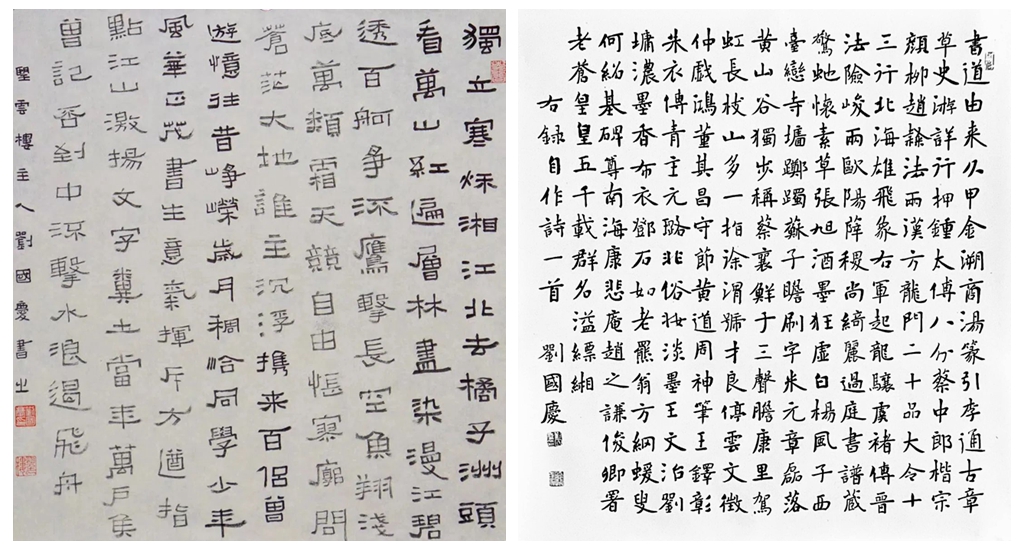 獨立寒秌湘江北去橘子洲頭
看萬山紅遍層林盡染漫江碧
透百舸爭流鷹擊長空魚翔淺
底萬類霜天競自由悵寥廓問
蒼茫大地誰主沉浮携来百侶曾
遊憶往昔崢嶸歲月稠恰同學少年
風華正茂書生意氣揮斥方遒指
點江山激揚文字糞土當年萬戶侯
曾記否到中流擊水浪遏飛舟
雲樓主人劉國慶書之
書道由来久甲金溯商湯篆引李通古章
草史游詳行押鍾太傅八分蔡中郎楷宗
顏柳趙隸法兩漢方龍門二十品大令十
三行北海雄飛象右軍起龍驤虞褚傳晉
法險峻兩歐陽薛稷尚綺麗過庭書譜蔵
驚虵懷素草張旭酒墨狂虛白楊風子西
臺戀寺壚躑躅蘇子瞻刷字米元章磊落
黄山谷獨步稱蔡襄鮮于三聲膽康里駕
虹長枝山多一指涂渭號才良停雲文徵
仲戲鴻董其昌守節黄道周神筆王鐸彰
朱衣傅青主元璐非俗妝淡墨王文治劉
墉濃墨香布衣鄧石如老羆翁方綱蝯叟
何紹基碑尊南海康悲庵趙之謙俊卿署
老蒼皇皇五千載群名溢縹緗
右録自作詩一首 劉國慶